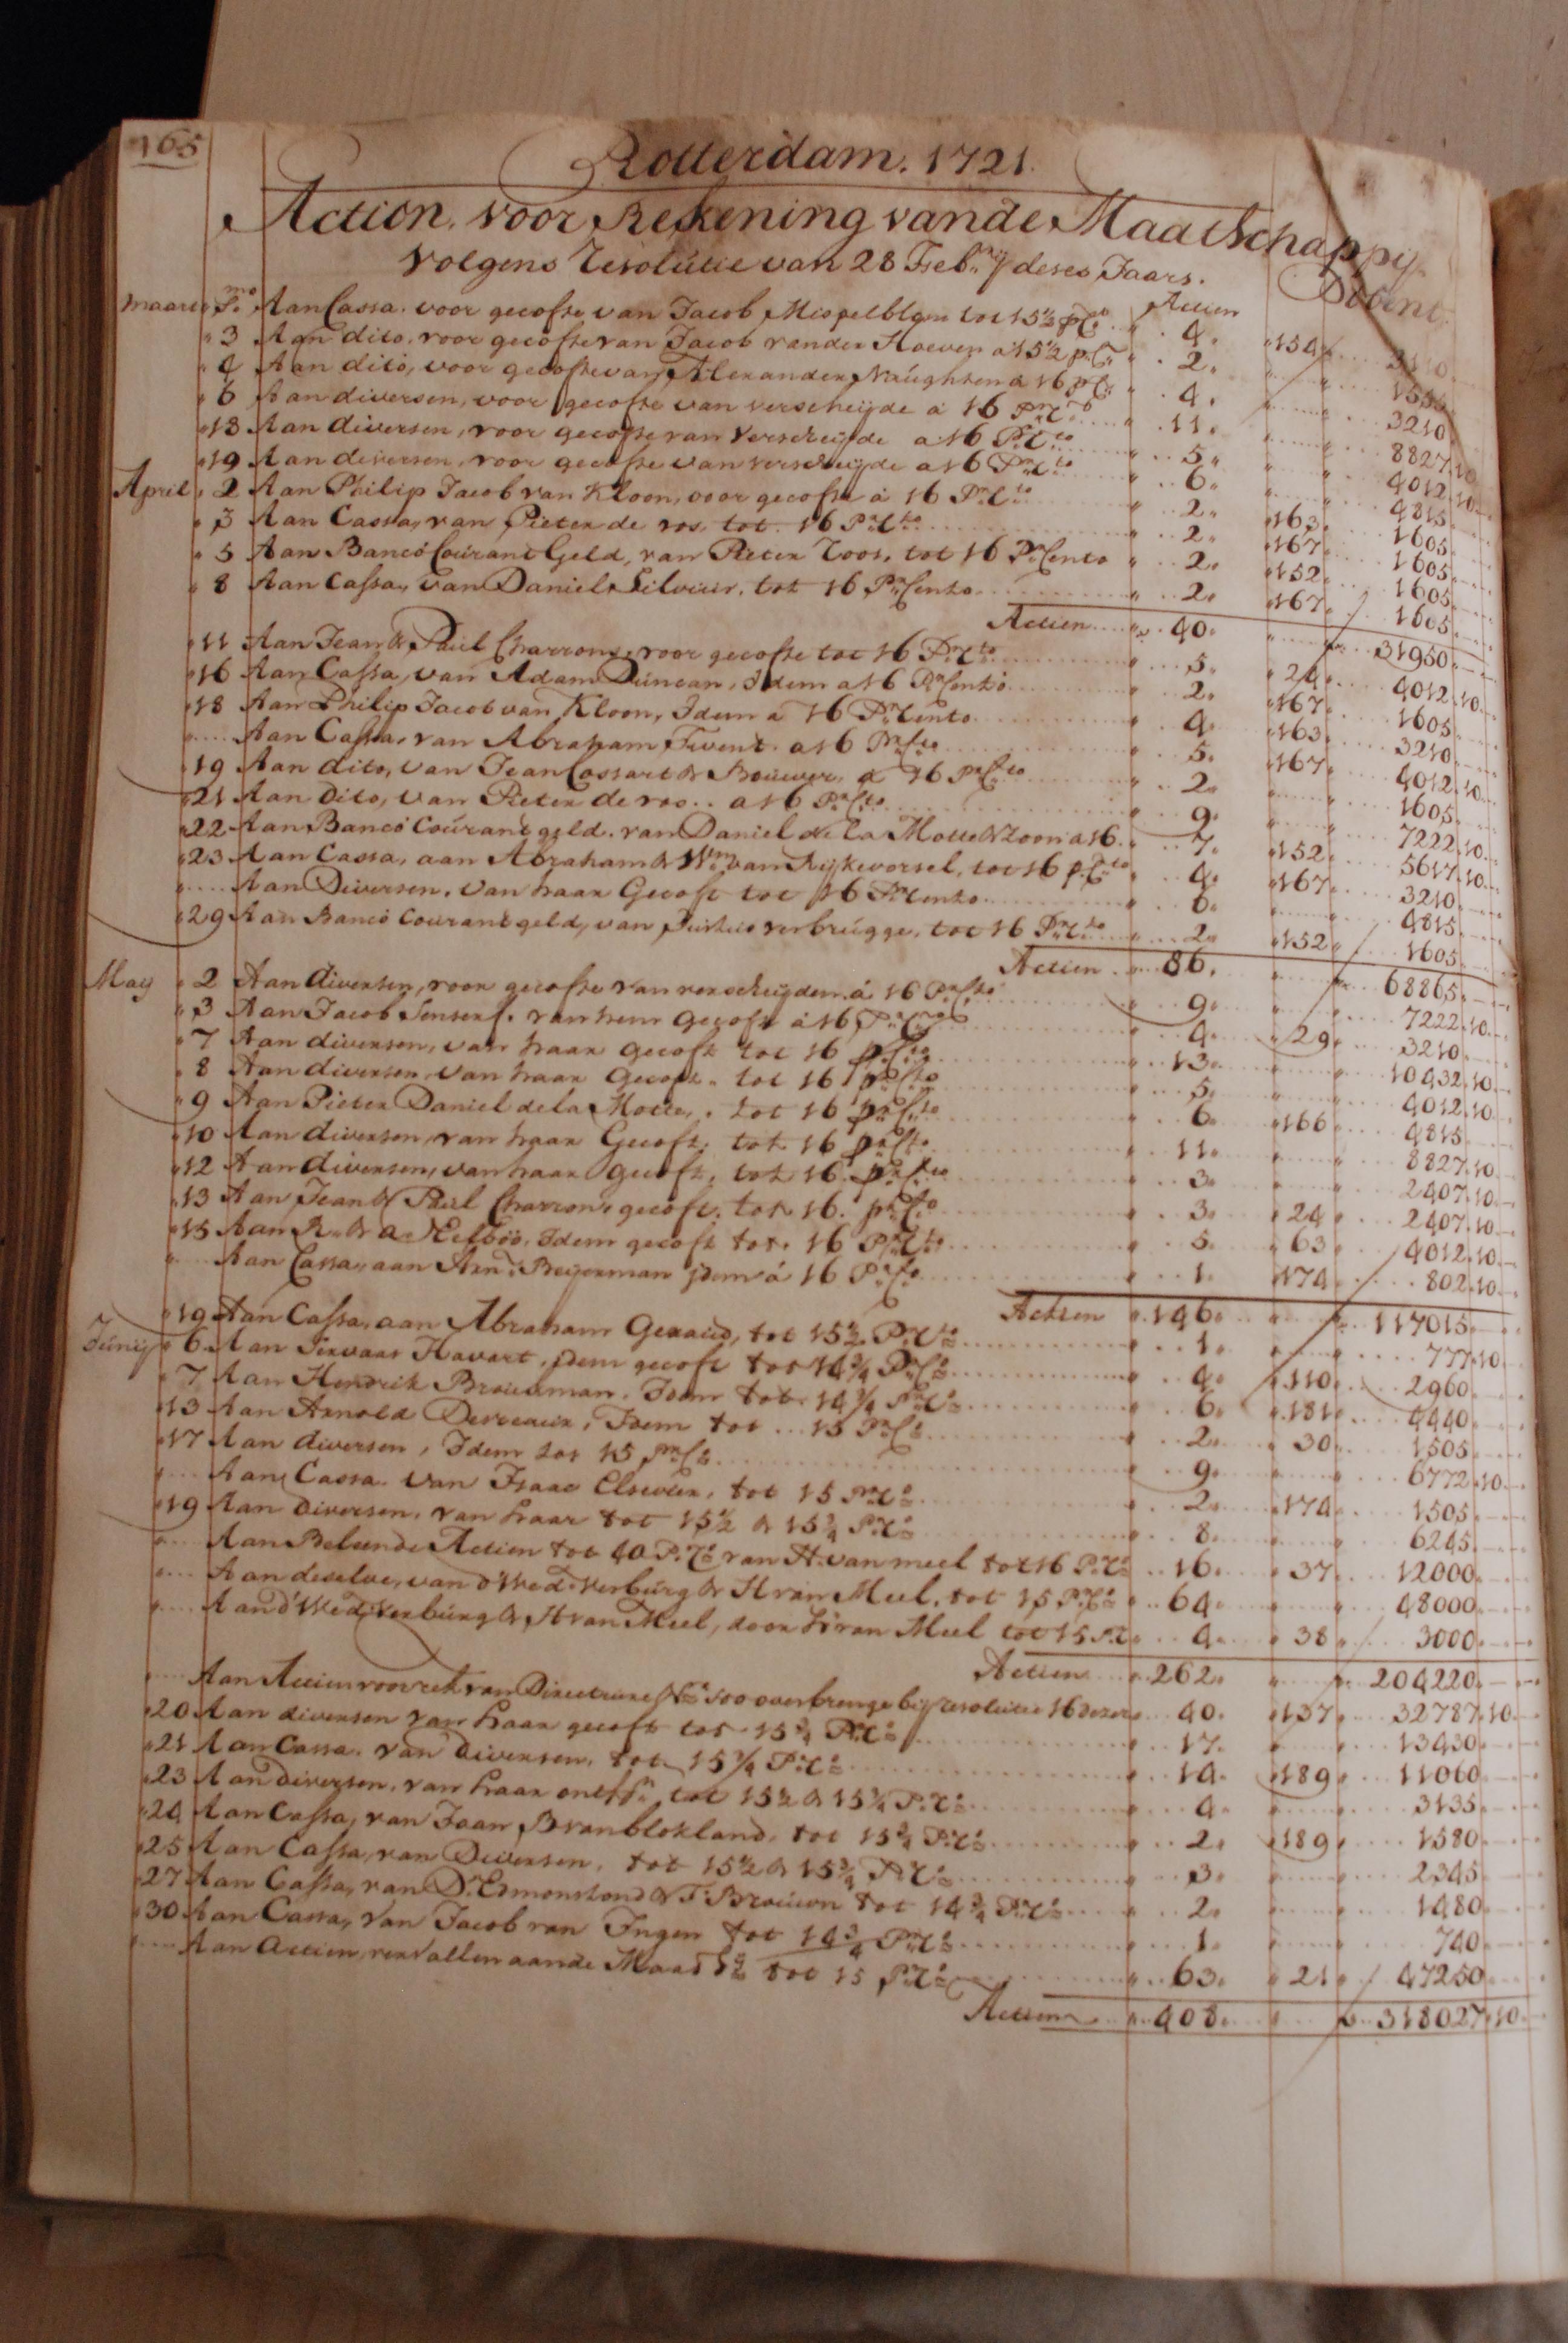 165
Rotterdam. 1721.
Actien, voor Rekening vande Maatschappij
volgens Resolutie van 28 Feb. deses Jaars.
Actien Debent
Maart Pmo Aan Cassa. voor gecofte van Jacob Mispelblom tot 15½ p Cto 4. 154 3110
3 Aan dito, voor gecofte van Jacob vander Hoeven a 15½ p Cto 2. 1555
4 Aan dito, voor gecofte van Alexander Naughten a 16 p Cto 4. 3210
6 Aan diversen, voor gecofte van verscheyde a 16 Pr Cto 11. 8827.10
13 Aan diversen, voor gecofte van verscheyde a 16 Pr Cto 5. 4012.10
19 Aan diversen, voor gecofte van verscheyde a 16 Pr Cto 6. 4815
April 2 Aan Philip Jacob van Kloon, voor gecofte a 16 Pr Cto 2. 163 1605
3 Aan Cassa, van Pieter de vos, tot 16 Pr Cto 2. 167 1605
5 Aan Banco Courant Geld, van Pieter Loos, tot 16 Pr Cento 2. 152 1605
8 Aan Cassa, van Daniel Silvius, tot 16 Pr Cento 2. 167 1605
Actien 40. 31950
11 Aan Jean & Paul Charrons, voor gecofte tot 16 Pr Cto 5. 24 4012.10
16 Aan Cassa, van Adam Duncan, Idem a 16 Pr Cento 2. 167 1605
18 Aan Philip Jacob van Kloon, Idem a 16 Pr Cento 4. 163 3210
Aan Cassa, van Abraham Twent. a 16 Pr Cto 5. 167 4012.10
19 Aan dito, van Jean Cossart & Bouwer, a 16 Pr Cto 2. 1605
21 Aan Dito, van Pieter de vos.. a 16 Pr Cto 9. 7222.10
22 Aan Banco Courant geld. van Daniel de la Motte & Zoon a 16. 7. 152 5617.10
23 Aan Cassa, aan Abraham & Wm van Rijkevorsel, tot 16 p Cto 4. 167 3210
Aan Diversen, van haar Gecoft tot 16 Pr Cento 6. 4815
29 Aan Banco Courant geld, van verbrugge, tot 16 Pr Cto 2. 152 1605
Actien 86. 68865
May 2 Aan diversen, voor gecofte van verscheyden a 16 Pr Cto 9. 7222.10
3 Aan Jacob Senserf. van hem gecoft a 16 Pr Cto 4. 29 3210
7 Aan diversen, van haar gecoft tot 16 pr Cto 13. 10432.10
8 Aan diversen, van haar Gecoft. tot 16 pr Cto 5. 4012.10
9 Aan Pieter Daniel dela Motte, tot 16 pr Cto 6. 166 4815
10 Aan diversen, van haar Gecoft, tot 16 pr Cto 11. 8827.10
12 Aan diversen, van haar gecoft, tot 16 pr Cto 3. 2407.10
13 Aan Jean & Paul Charrons gecoft. tot 16. pr Cto 3. 24 2407.10
15 Aan R. & a Idem gecoft tot 16 Pr Cto 5. 63 4012.10
Aan Cassa, aan Arnd. Beijerman Idem á 16 Pr Cto 1. 174 802.10
Actien 146. 117015
19 Aan Cassa, aan Abraham Geraud, tot 15½ Pr Cto 1. 777.10
Junij 6 Aan Servaas Havart, Idem gecoft tot 14¾ Pr Cto 4. 110 2960
7 Aan Hendrik Idem tot 14¾ Pr Cto 6. 181 4440
13 Aan Arnold Idem tot ... 15 Pr Cto 2. 30 1505
17 Aan diversen, Idem tot 15 pr Cto 9. 6772.10
Aan Cassa. van Isaac Elsevier, tot 15 Pr Cto 2. 174 1505
19 Aan diversen, van haar tot 15½ & 15¾ Pr Cto 8. 6245
Aan Beleende Actien tot 40 Pr Cto van H. van meel tot 16 Pr Cto 16. 37 12000
Aan deselve, van d'Wed. verburg & H van Meel, tot 15 Pr Cto 64. 48000
Aan d'Wed. verburg & H van Meel, door H van Meel tot 15 Pr C 4. 38 3000
Actien 262. 204220
Aan Actien voor rek van Directeuren No 500 overbrenge bij resolutie 16 dezer 40. 137 32787.10
20 Aan diversen van haar gecoft tot 15¾ Pr Cto 17. 13430
21 Aan Cassa. van diversen, tot 15¾ Pr Cto 14. 189 11060
23 Aan diversen, van haar tot 15½ & 15¾ Pr Cto 4. 3135
24 Aan Cassa, van Jaan B van blokland, tot 15¾ Pr Cto 2. 189 1580
25 Aan Cassa, van Diversen, tot 15½ & 15¾ Pr Cto 3. 2345
27 Aan Cassa, van D. Edmonstond & T. tot 14¾ Pr Cto 2. 1480
30 Aan Cassa, van Jacob van Ingen tot 14¾ Pr Cto 1. 740
Aan Actien, vervallen aande Maats. tot 15 Pr Cto 63. 21 47250
Actien 408. 318027.10